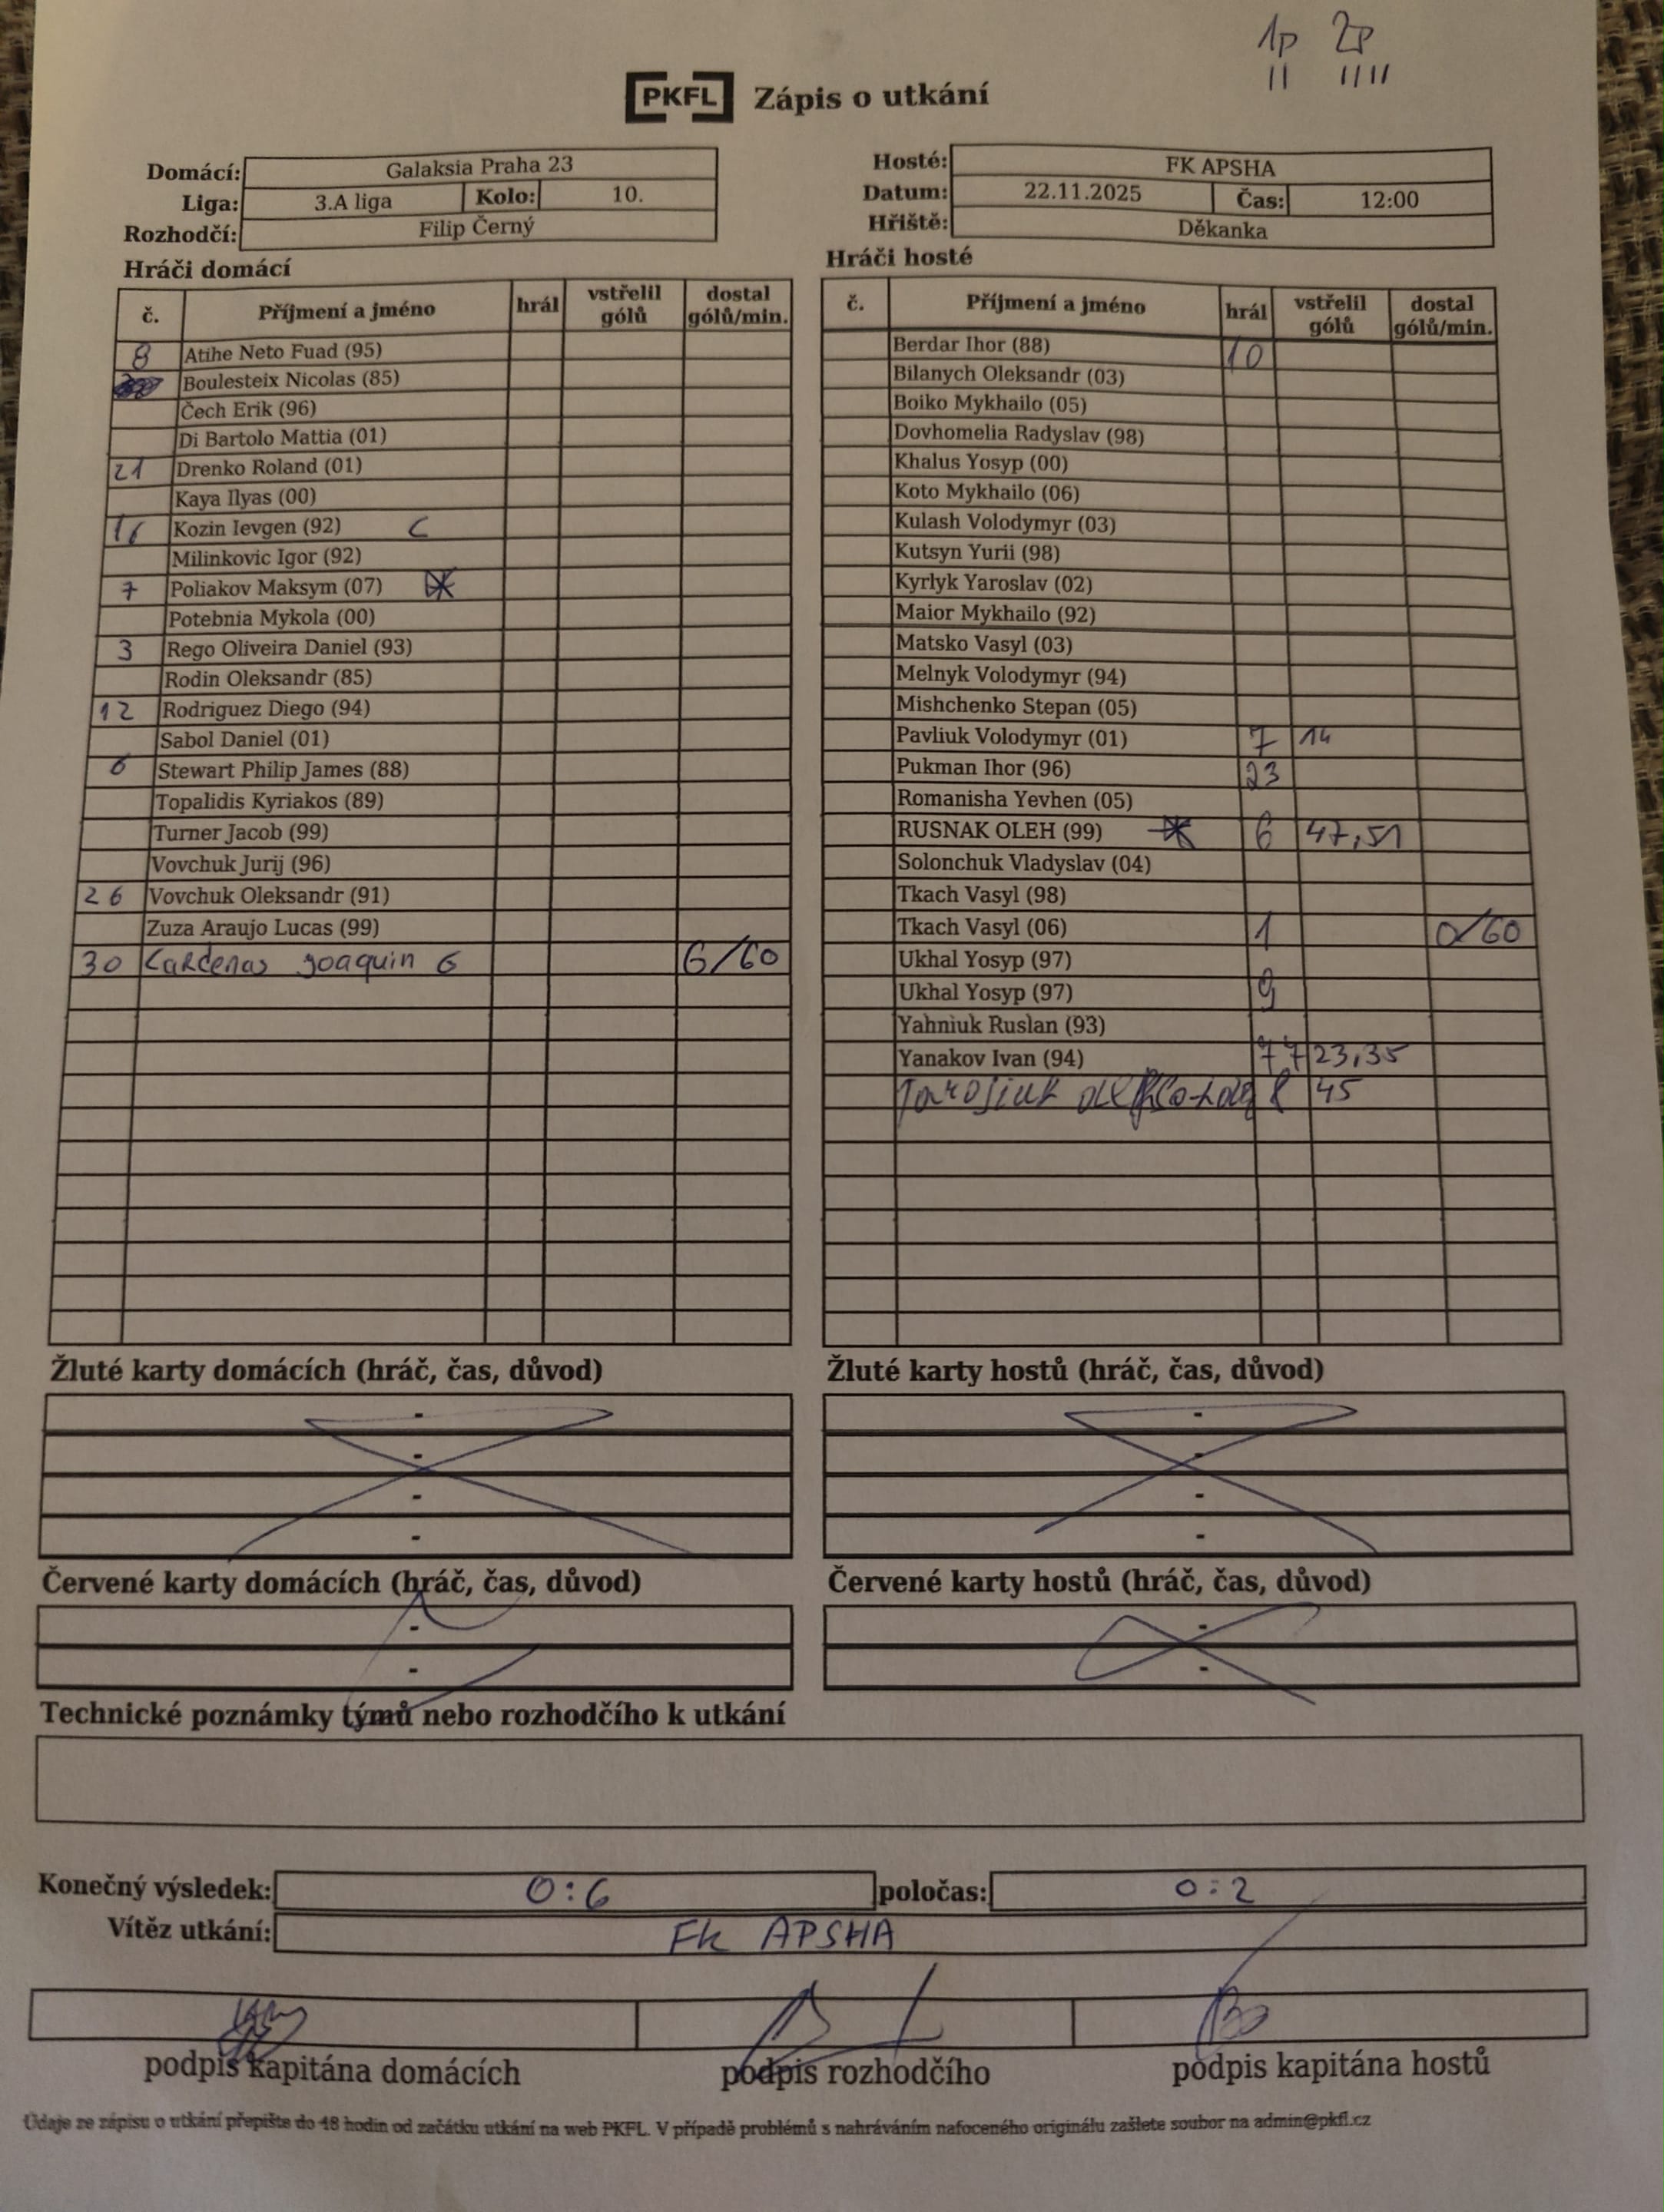 1p 2p
II IIII
PKFL Zápis o utkání
Domácí: Galaksia Praha 23
Liga: 3.A liga Kolo: 10.
Rozhodčí: Filip Černý
Hosté: FK APSHA
Datum: 22.11.2025 Čas: 12:00
Hřiště: Děkanka
Hráči domácí
č. Příjmení a jméno hrál vstřelil gólů dostal gólů/min.
8 Atihe Neto Fuad (95)
Boulesteix Nicolas (85)
Čech Erik (96)
Di Bartolo Mattia (01)
21 Drenko Roland (01)
Kaya Ilyas (00)
16 Kozin Ievgen (92) C
Milinkovic Igor (92)
7 Poliakov Maksym (07)
Potebnia Mykola (00)
3 Rego Oliveira Daniel (93)
Rodin Oleksandr (85)
12 Rodriguez Diego (94)
Sabol Daniel (01)
6 Stewart Philip James (88)
Topalidis Kyriakos (89)
Turner Jacob (99)
Vovchuk Jurij (96)
26 Vovchuk Oleksandr (91)
Zuza Araujo Lucas (99)
30 Cardenas Joaquin G 6/60
Hráči hosté
č. Příjmení a jméno hrál vstřelil gólů dostal gólů/min.
Berdar Ihor (88) 10
Bilanych Oleksandr (03)
Boiko Mykhailo (05)
Dovhomelia Radyslav (98)
Khalus Yosyp (00)
Koto Mykhailo (06)
Kulash Volodymyr (03)
Kutsyn Yurii (98)
Kyrlyk Yaroslav (02)
Maior Mykhailo (92)
Matsko Vasyl (03)
Melnyk Volodymyr (94)
Mishchenko Stepan (05)
Pavliuk Volodymyr (01) 7 14
Pukman Ihor (96) 23
Romanisha Yevhen (05)
RUSNAK OLEH (99) 6 47,51
Solonchuk Vladyslav (04)
Tkach Vasyl (98)
Tkach Vasyl (06) 1 0/60
Ukhal Yosyp (97)
Ukhal Yosyp (97) 9
Yahniuk Ruslan (93)
Yanakov Ivan (94) 77 23,35
8 45
Žluté karty domácích (hráč, čas, důvod)
-
-
-
-
Žluté karty hostů (hráč, čas, důvod)
-
-
-
-
Červené karty domácích (hráč, čas, důvod)
-
-
Červené karty hostů (hráč, čas, důvod)
-
-
Technické poznámky týmů nebo rozhodčího k utkání
Konečný výsledek: 0:6 poločas: 0:2
Vítěz utkání: FK APSHA
podpis kapitána domácích podpis rozhodčího podpis kapitána hostů
Údaje ze zápisu o utkání přepište do 48 hodin od začátku utkání na web PKFL. V případě problémů s nahráváním nafoceného originálu zašlete soubor na admin@pkfl.cz